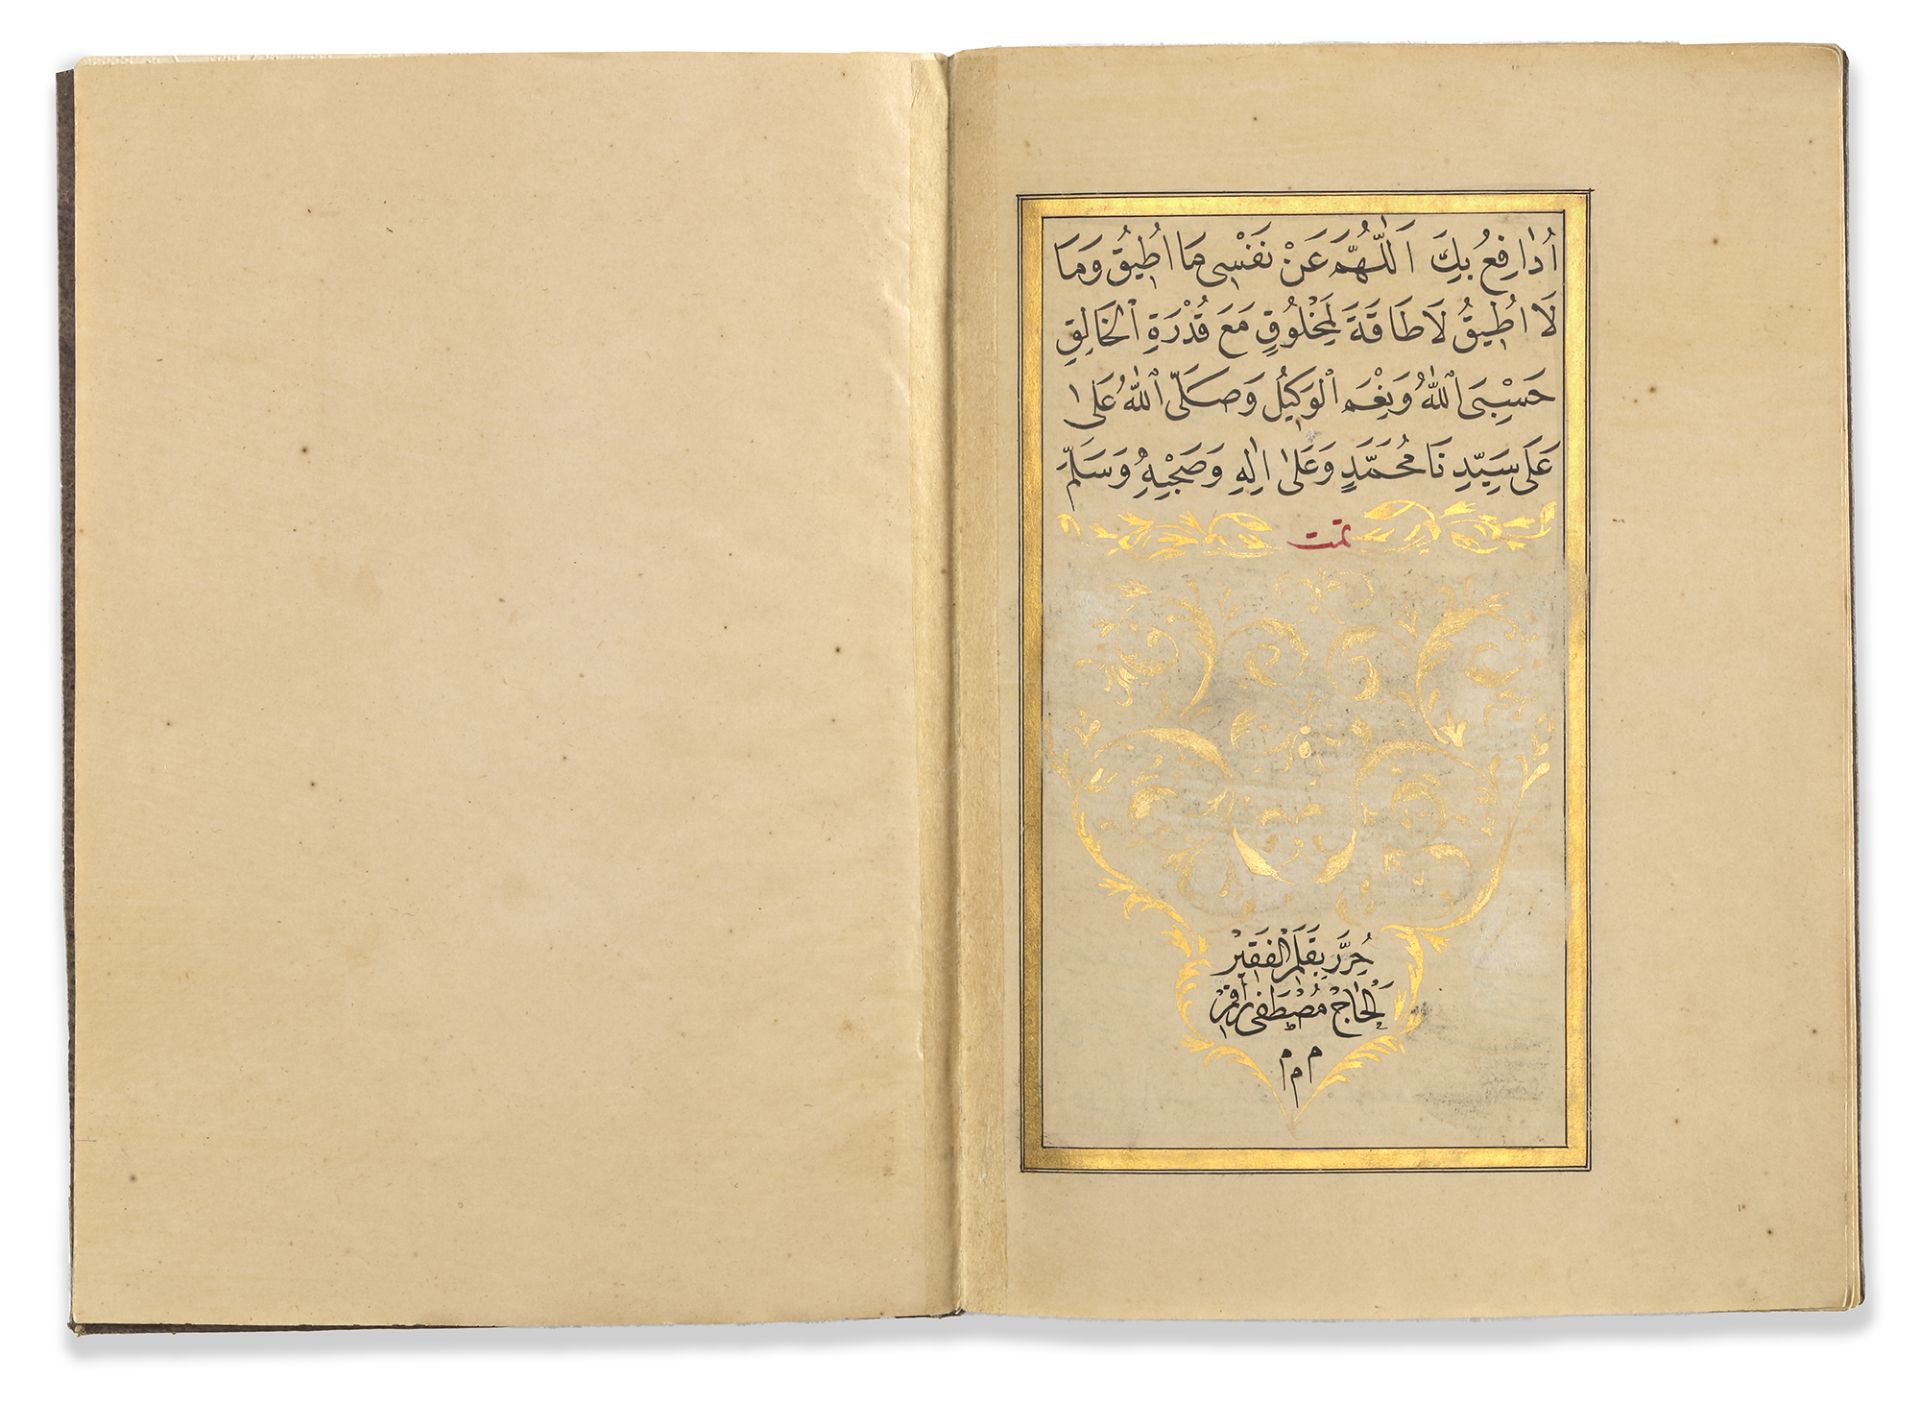 اُدَافِعُ بِكَ اَللّٰهُمَّ عَنْ نَفْسِى مَا اُطِيقُ وَمَا
لَا اُطِيقُ لَا طَاقَةَ لِمَخْلُوقٍ مَعَ قُدْرَةِ الْخَالِقِ
حَسْبِىَ اللّٰهُ وَنِعْمَ الْوَكِيلُ وَصَلَّى اللّٰهُ عَلٰى
عَلَى سَيِّدِنَا مُحَمَّدٍ وَعَلٰى اٰلِهِ وَصَحْبِهِ وَسَلَّمَ
تمت
حُرِّرَ بِقَلَمِ الْفَقِيرْ
اَلْحَاجْ مُصْطَفٰى رَاقِمْ
م م م